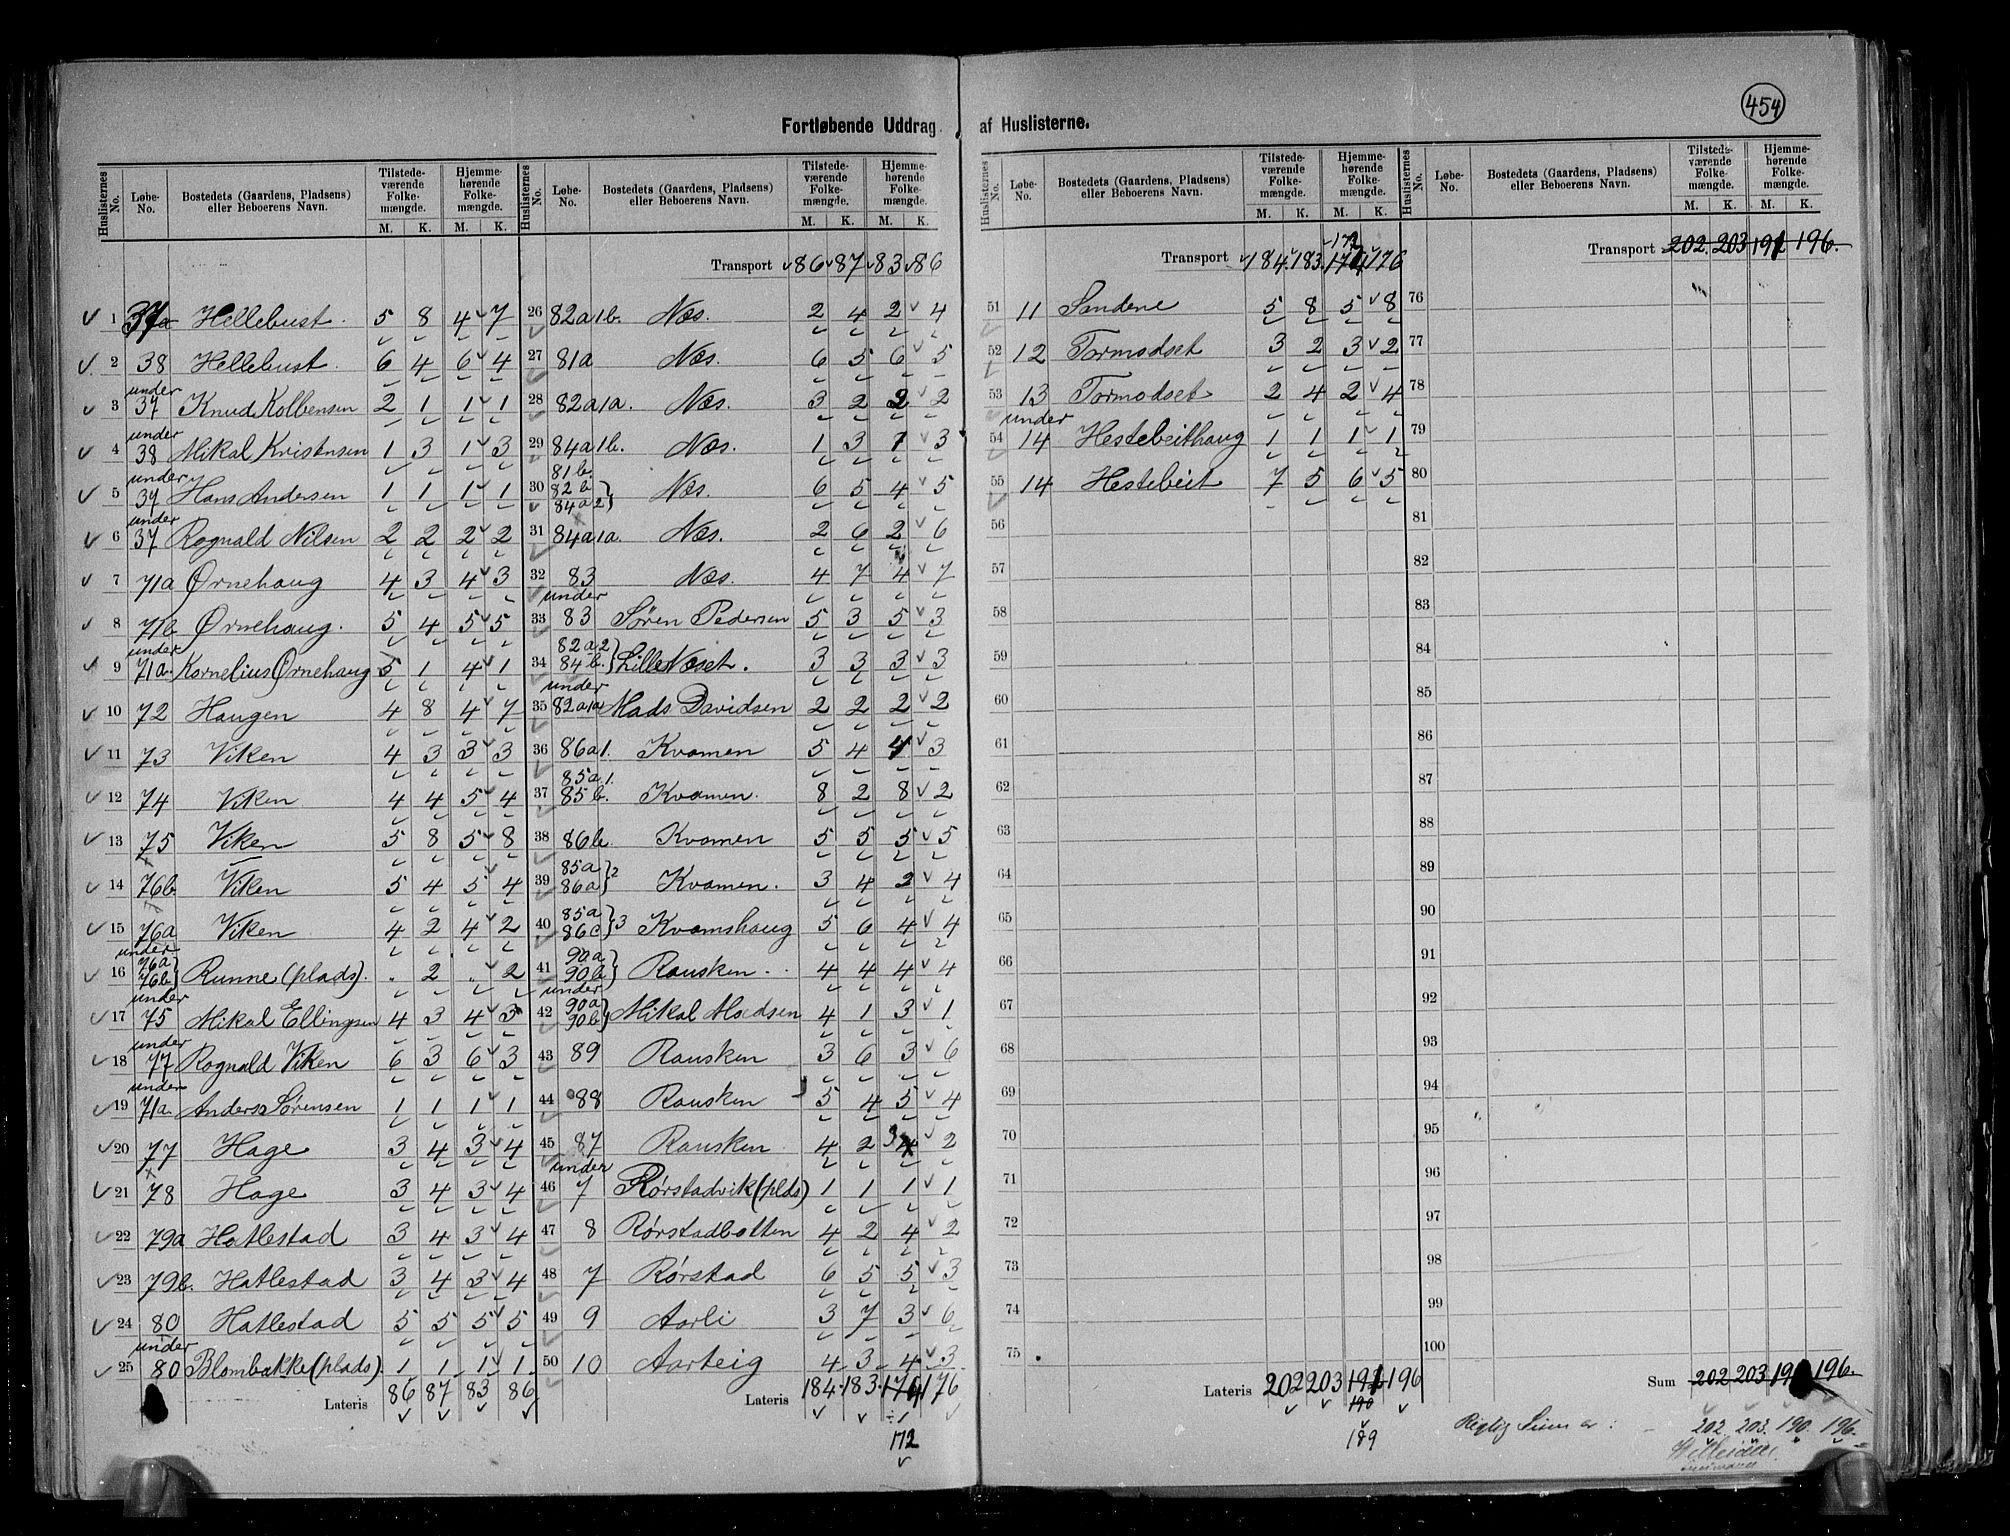 454
Fortløbende Uddrag af Huslisterne.
Huslisternes No. Løbe-No. Bostedets (Gaardens, Pladsens) eller Beboerens Navn. Tilstedeværende Folkemængde. M. K. Hjemmehørende Folkemængde. M. K.
1 37a Hellebust. 5 8 4 7
2 38 Hellebust. 6 4 6 4
3 under 37 Knud Kolbensen 2 1 1 1
4 under 38 Mikal Kristensen 1 3 1 3
5 under 37 Hans Andersen 1 1 1 1
6 under 37 Rognald Nilsen 2 2 2 2
7 71a Ørnehaug 4 3 4 3
8 71b Ørnehaug. 5 4 5 5
9 under 71a. Kornelius Ørnehaug 5 1 4 1
10 72 Haugen 4 8 4 7
11 73 Viken 4 3 3 3
12 74 Viken 4 4 5 4
13 75 Viken 5 8 5 8
14 76b Viken 5 4 5 4
15 76a Viken 4 2 4 2
16 under 76a 76b} Runne (plads). . 2 . 2
17 under 75 Mikal Ellingsen 4 3 4 3
18 under 77 Rognald Viken 6 3 6 3
19 under 71a. Anders Sørensen 1 1 1 1
20 77 Hage 3 4 3 4
21 78 Hage 3 4 3 4
22 79a Hatlestad 3 4 3 4
23 79b. Hatlestad 3 4 3 4
24 80 Hatlestad 5 5 5 5
25 under 80 Blombakke (plads). 1 1 1 1
Lateris 86 87 83 86
Huslisternes No. Løbe-No. Bostedets (Gaardens, Pladsens) eller Beboerens Navn. Tilstedeværende Folkemængde. M. K. Hjemmehørende Folkemængde. M. K.
Transport 86 87 83 86
26 82a1b. Næs. 2 4 2 4
27 81a Næs. 6 5 6 5
28 82a1a. Næs. 3 2 2 2
29 84a1b. Næs. 1 3 1 3
30 81b. 82b 84a2} Næs. 6 5 4 5
31 84a1a. Næs. 2 6 2 6
32 83 Næs. 4 7 4 7
33 under 83 Søren Pedersen 5 3 5 3
34 82a2 84b.} Lille Næset. 3 3 3 3
35 under 82a1a Mads Davidsen 2 2 2 2
36 86a1. Kvamen 5 4 4 3
37 85a1. 85b. Kvamen. 8 2 8 2
38 86b. Kvamen 5 5 5 5
39 85a 86a}2 Kvamen. 3 4 2 4
40 85a 86c}3 Kvamshaug 5 6 4 4
41 90a 90b} Rausken. 4 4 4 4
42 under 90a 90b} Mikal Madsen 4 1 3 1
43 89 Rausken 3 6 3 6
44 88 Rausken 5 4 5 4
45 87 Rausken 4 2 3 4 2
46 under 7 Rørstadvik (plds) 1 1 1 1
47 8 Rørstadbotten 4 2 4 2
48 7 Rørstad 6 5 5 3
49 9 Aarli 3 7 3 6
50 10 Aarteig 4 3 4 3
Lateris 184. 183. 174 176
172
Huslisternes No. Løbe-No. Bostedets (Gaardens, Pladsens) eller Beboerens Navn. Tilstedeværende Folkemængde. M. K. Hjemmehørende Folkemængde. M. K.
172
Transport 184. 183. 174 176
51 11 Sandene 5 8 5 8
52 12 Tormodset 3 2 3 2
53 13 Tormodset 2 4 2 4
54 under 14 Hestebeithaug 1 1 1 1
55 14 Hestebeit 7 5 6 5
56
57
58
59
60
61
62
63
64
65
66
67
68
69
70
71
72
73
74
75
Lateris 202 203 191 196
190
189
Huslisternes No. Løbe-No. Bostedets (Gaardens, Pladsens) eller Beboerens Navn. Tilstedeværende Folkemængde. M. K. Hjemmehørende Folkemængde. M. K.
Transport 202. 203 191 196.
76
77
78
79
80
81
82
83
84
85
86
87
88
89
90
91
92
93
94
95
96
97
98
99
100
Sum 202 203 196.
Rigtig Sum er : 202 203. 190. 196.